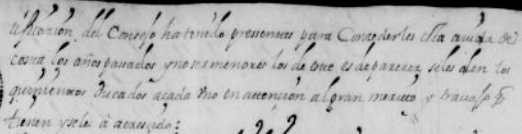 tificazion del Consejo ha tenido pressentes para Concederles esta ayuda de
costa los años passados y no ser menores los de este es de parezer se les den los
quinientos Ducados a cada vno en attencion al gran merito y trauajo q
tienen y se les à acrezido: